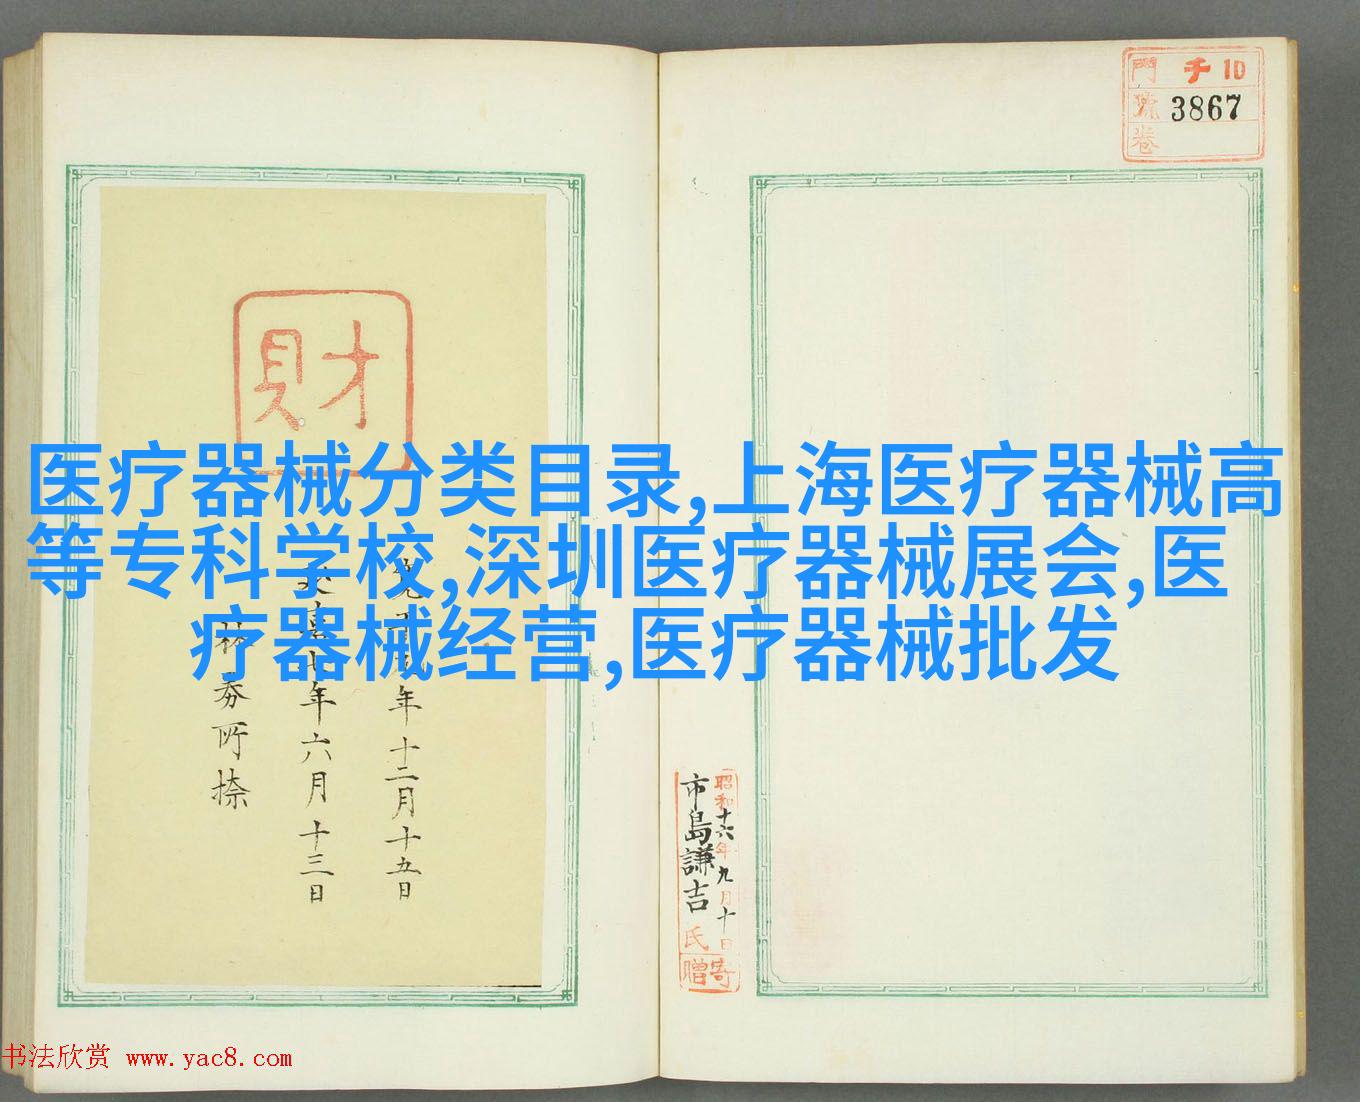 門 千 10
號 3867
卷
財
医疗器械分类目录,上海医疗器械高
等专科学校,深圳医疗器械展会,医
疗器械经营,医疗器械批发
年十二月十五日
七年六月十三日
所捺
昭和十六年九月十日
市島謙吉氏
寄贈
书法欣赏 www.yac8.com